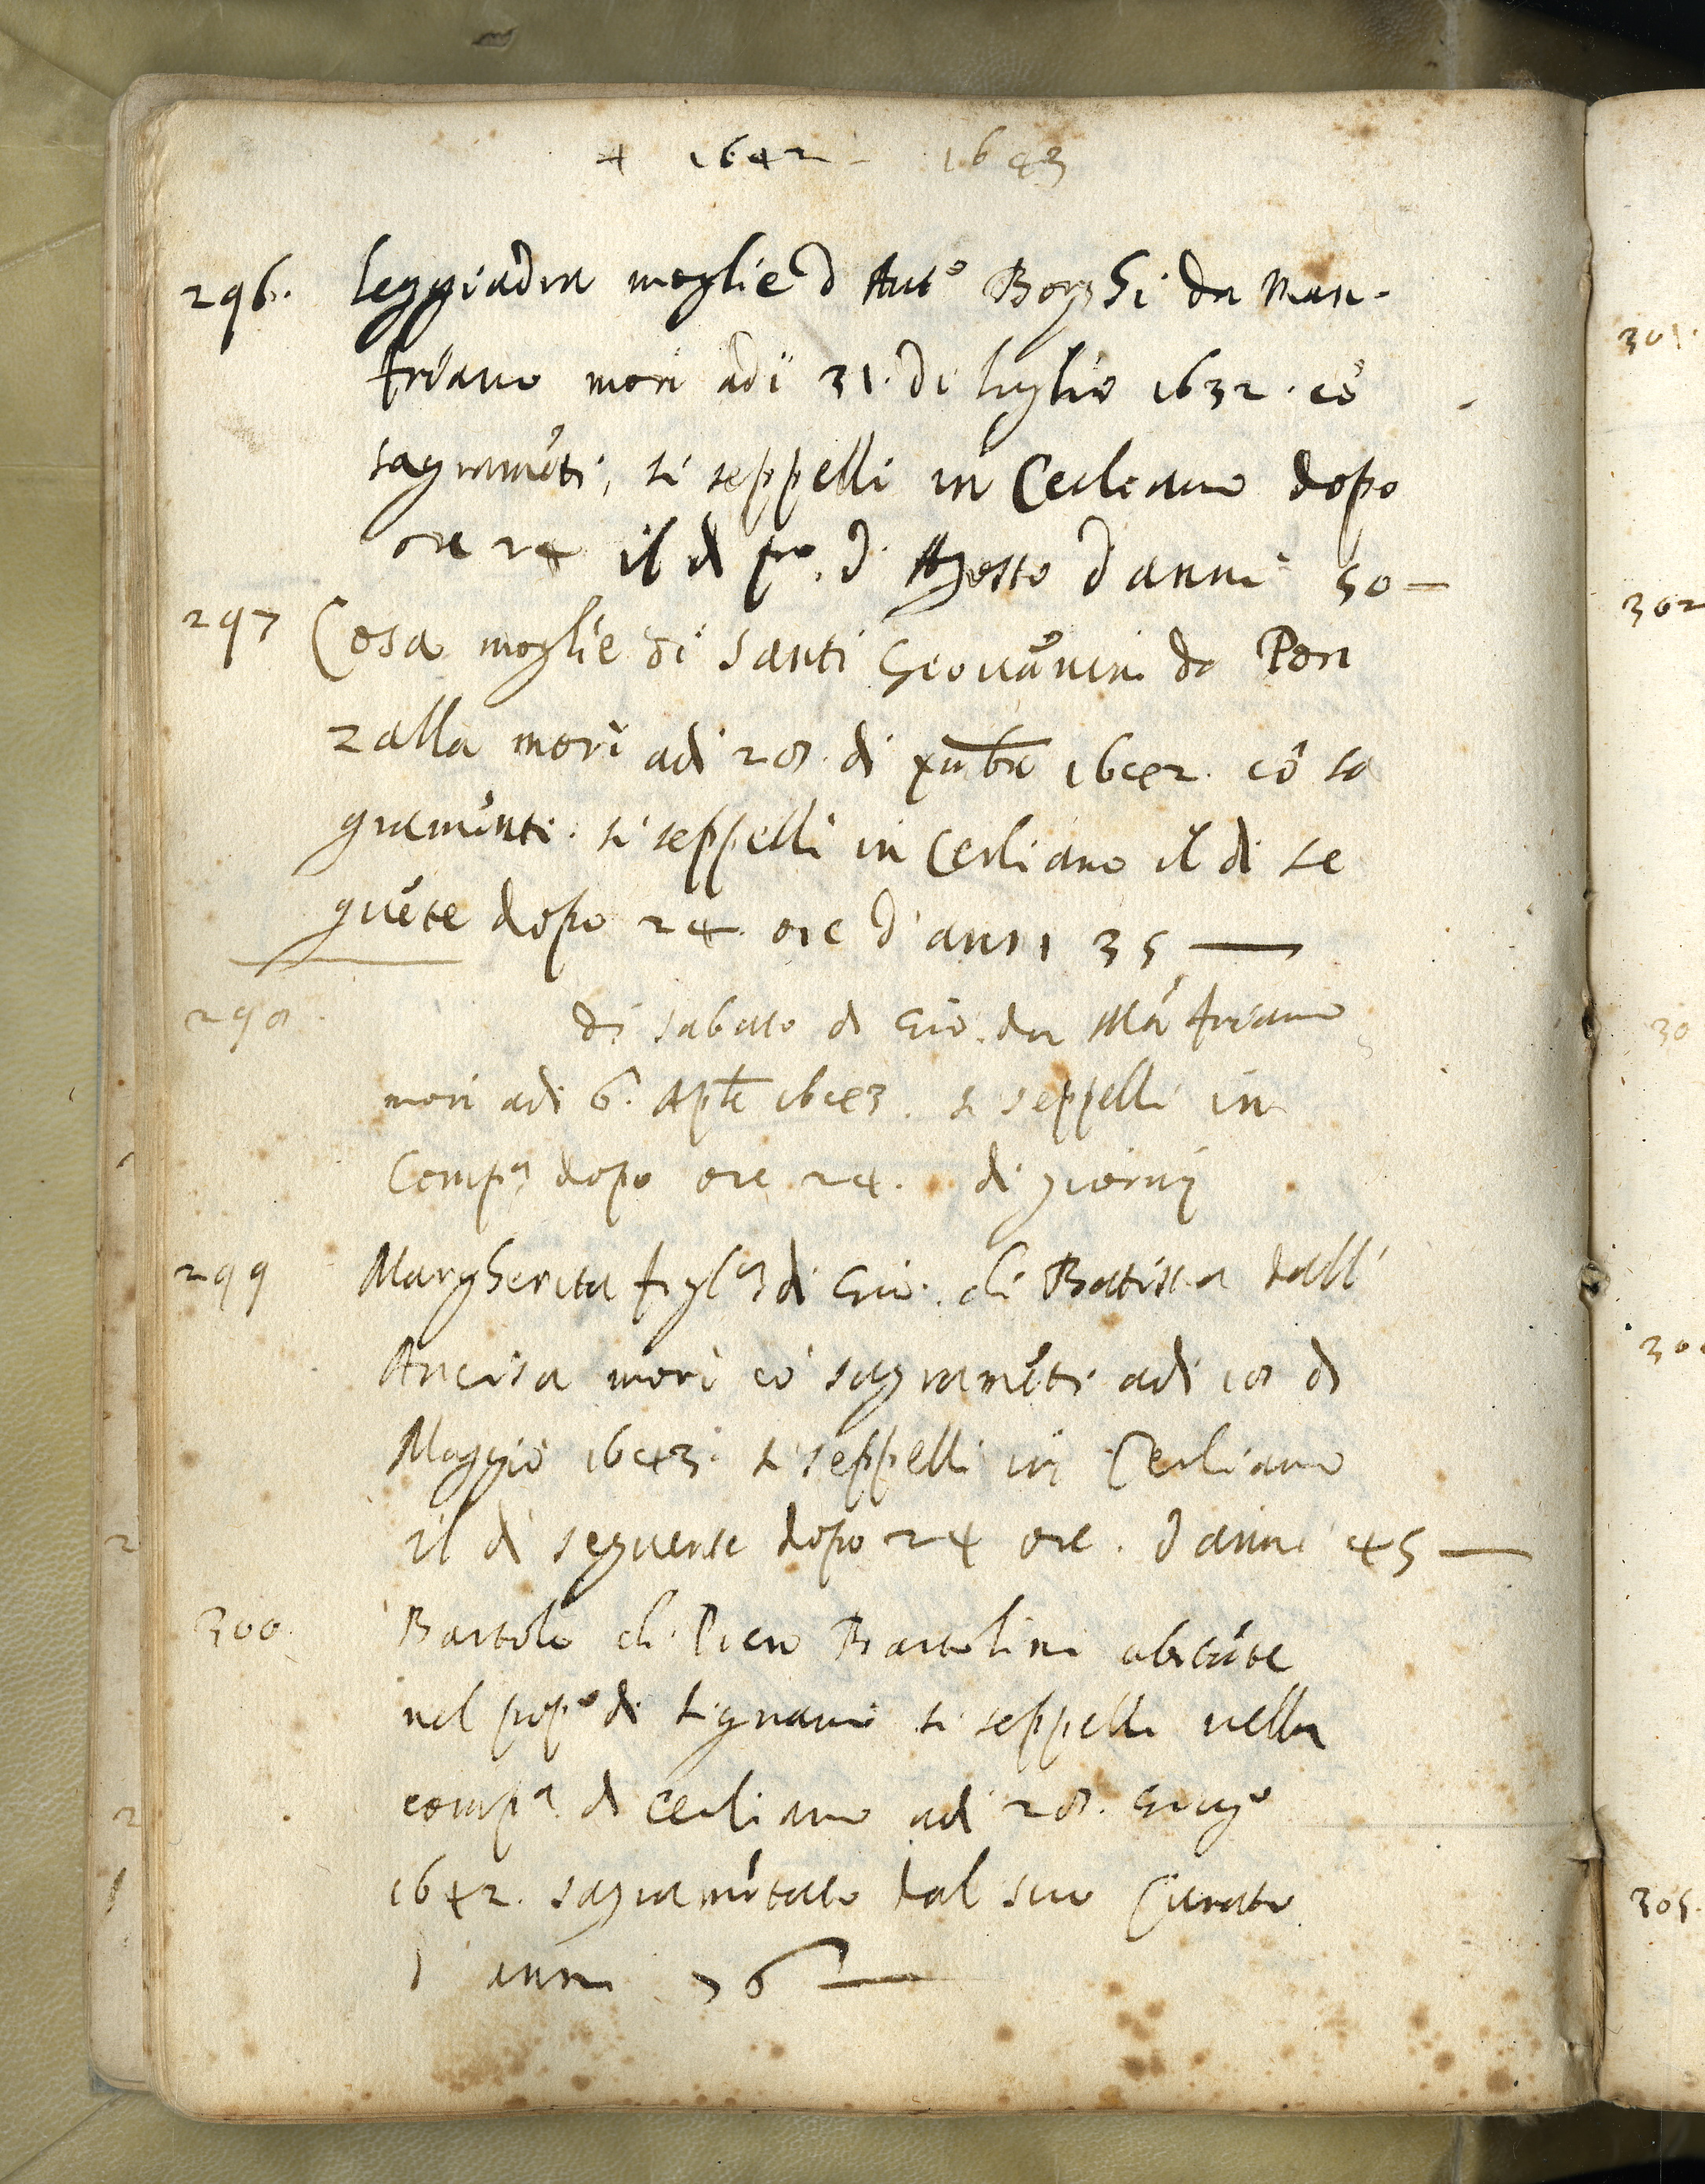 + 1642 - 1643
296. Leggiadra moglie d Ant° Borghi da Man-
friano morì adi 31. di luglio 1632. cō
sagramēti, si seppellì in Cerleano dopo
ore 24 il dì p.° d' Agosto d anni 50 —
297 Cosa moglie di Santi Giovānini da Pon
zalla morì adi 28. di xmbre 1642. cō sa
gramenti. si seppellì in Cerliano il dì se
guēte dopo 24 ore d'anni 35 —
298. di Sabato di Gio. da Māfriano
morì adi 6. Aple 1643. si seppellì in
Compa dopo ore 24. di giorni
299 Margherita figla di Gio. di Battista dall'
Ancisa morì cō sagramēti adi 18 di
Maggio 1643. si seppellì in Cerliano
il dì seguente dopo 24 ore. d'anni 45 —
300. Bartolo di Piero Bartolini abitāte
nel pop° di Signano si seppellì nella
compa di Cerliano adi 28. Giug°
1642. sagramētato dal suo Curato
d' anni 76 —
301.
302
30
30
305.